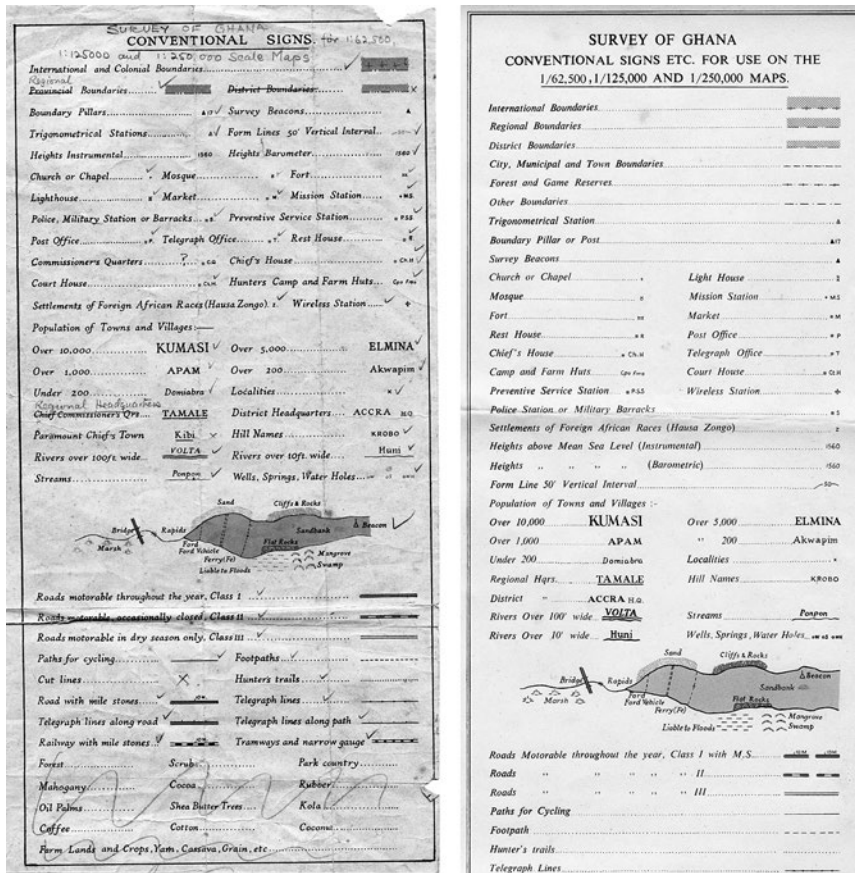 SURVEY OF GHANA
CONVENTIONAL SIGNS. for 1:62,500,
1:125000 and 1:250,000 Scale Maps
International and Colonial Boundaries
Regional
Provincial Boundaries District Boundaries
Boundary Pillars Survey Beacons
Trigonometrical Stations Form Lines 50' Vertical Interval
Heights Instrumental 1560 Heights Barometer 1560
Church or Chapel Mosque Fort
Lighthouse Market M. Mission Station M.S.
Police, Military Station or Barracks Preventive Service Station P.S.S.
Post Office P. Telegraph Office T. Rest House R
Commissioner's Quarters ? C.Q. Chief's House Ch.H
Court House Ct.H. Hunters Camp and Farm Huts
Settlements of Foreign African Races (Hausa Zongo) Wireless Station
Population of Towns and Villages:—
Over 10,000 KUMASI Over 5,000 ELMINA
Over 1,000 APAM Over 200 Akwapim
Under 200 Domiabra Localities
Regional Headquarters
Chief Commissioner's Qrs TAMALE District Headquarters ACCRA H.Q.
Paramount Chief's Town Kibi Hill Names KROBO
Rivers over 100ft. wide VOLTA Rivers over 10ft. wide Huni
Streams Ponpon Wells, Springs, Water Holes
Sand Cliffs & Rocks
Bridge Rapids Sandbank Beacon
Marsh Ford Flat Rocks
Ford Vehicle Mangrove
Ferry (Fe) Swamp
Liable to Floods
Roads motorable throughout the year, Class I
Roads motorable, occasionally closed, Class II
Roads motorable in dry season only, Class III
Paths for cycling Footpaths
Cut lines Hunter's trails
Road with mile stones Telegraph lines
Telegraph lines along road Telegraph lines along path
Railway with mile stones Tramways and narrow gauge
Forest Scrub Park country
Mahogany Cocoa Rubber
Oil Palms Shea Butter Trees Kola
Coffee Cotton Coconut
Farm Lands and Crops, Yam, Cassava, Grain, etc
SURVEY OF GHANA
CONVENTIONAL SIGNS ETC. FOR USE ON THE
1/62,500, 1/125,000 AND 1/250,000 MAPS.
International Boundaries
Regional Boundaries
District Boundaries
City, Municipal and Town Boundaries
Forest and Game Reserves
Other Boundaries
Trigonometrical Station
Boundary Pillar or Post
Survey Beacons
Church or Chapel Light House
Mosque Mission Station M.S
Fort Market M
Rest House R Post Office P
Chief's House Ch.H Telegraph Office T
Camp and Farm Huts Court House Ct.H
Preventive Service Station P.S.S Wireless Station
Police Station or Military Barracks
Settlements of Foreign African Races (Hausa Zongo)
Heights above Mean Sea Level (Instrumental) 1560
Heights " " " (Barometric) 1560
Form Line 50' Vertical Interval 50
Population of Towns and Villages :-
Over 10,000 KUMASI Over 5,000 ELMINA
Over 1,000 APAM " 200 Akwapim
Under 200 Domiabra Localities
Regional Hqrs. TAMALE Hill Names KROBO
District " ACCRA H.Q.
Rivers Over 100' wide VOLTA Streams Ponpon
Rivers Over 10' wide Huni Wells, Springs, Water Holes
Sand Cliffs & Rocks
Bridge Rapids Sandbank Beacon
Marsh Ford Flat Rocks
Ford Vehicle Mangrove
Ferry (Fe) Swamp
Liable to Floods
Roads Motorable throughout the year, Class I with M.S.
Roads " " " " " II
Roads " " " " " III
Paths for Cycling
Footpath
Hunter's trails
Telegraph Lines